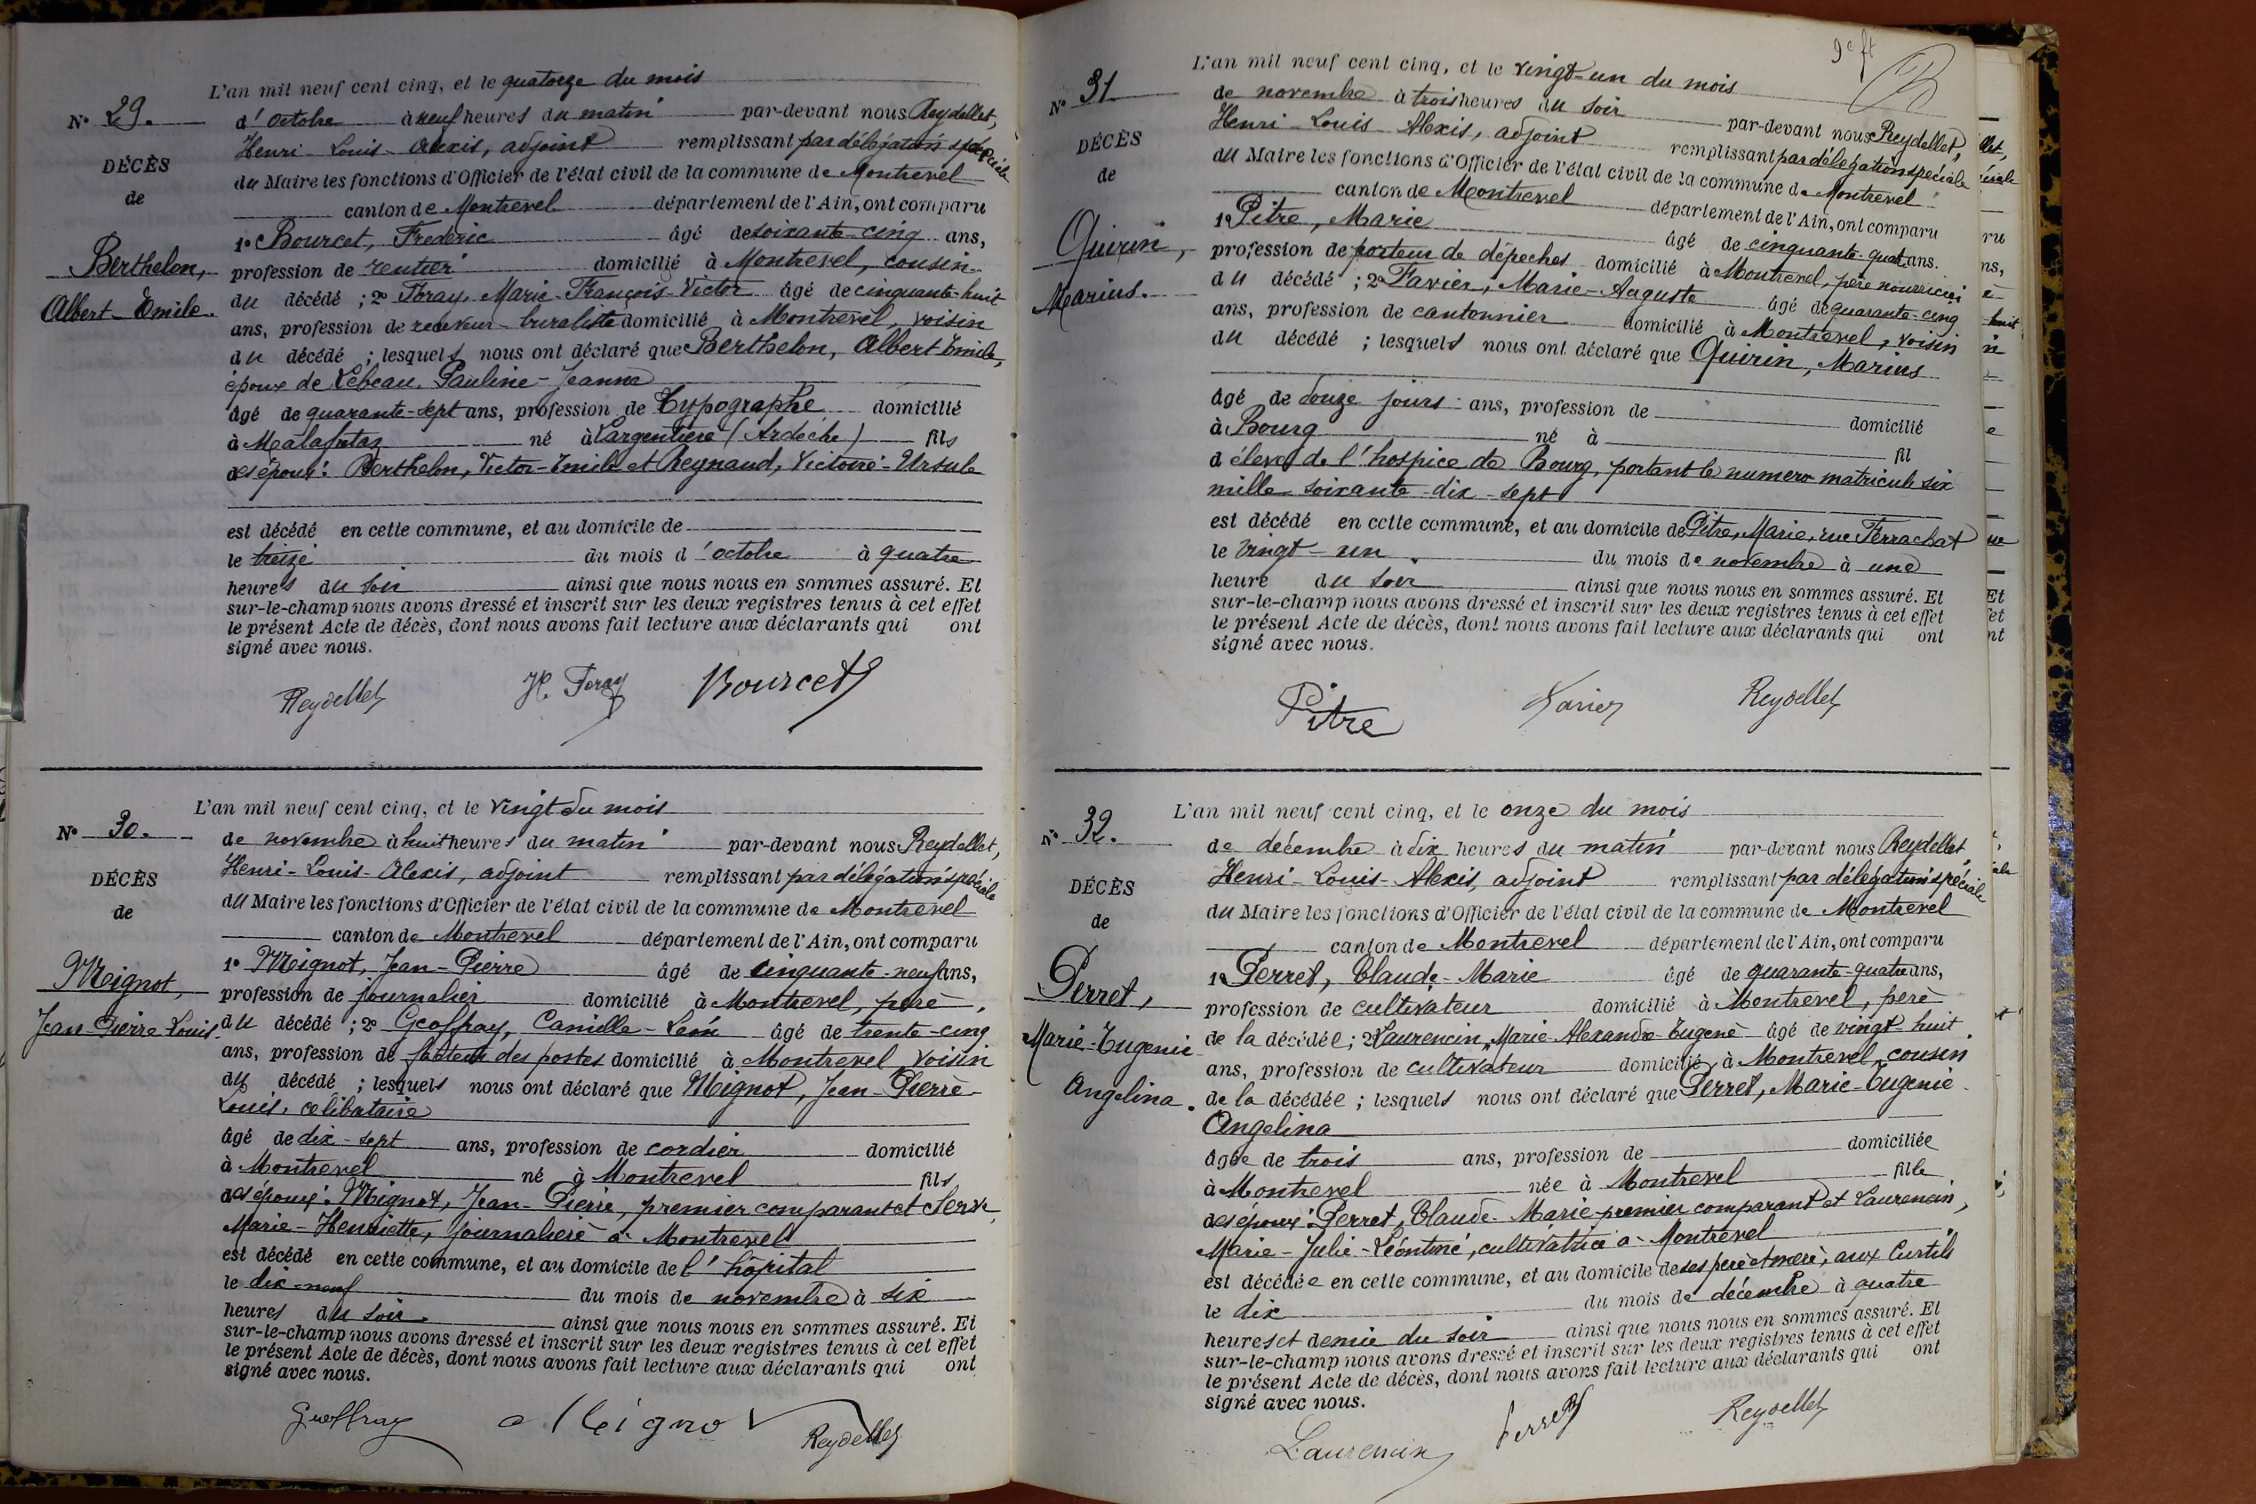 L'an mil neuf cent cinq, et le quatorze du mois
N° 29.
d'octobre à neuf heures du matin par-devant nous Reydellet,
Henri-Louis-Alexis, adjoint remplissant par délégation spéciale
DÉCÈS
du Maire les fonctions d'Officier de l'état civil de la commune de Montrevel
de
canton de Montrevel département de l'Ain, ont comparu
1° Bourcet, Frederic âgé de soixante-cinq ans,
Berthelon,
profession de rentier domicilié à Montrevel, cousin
Albert-Emile.
du décédé ; 2° Foray, Marie-François-Victor âgé de cinquante-huit
ans, profession de receveur-buraliste domicilié à Montrevel, voisin
du décédé ; lesquels nous ont déclaré que Berthelon, Albert Emile,
époux de Lebeau, Pauline-Jeanne
âgé de quarante-sept ans, profession de Typographe domicilié
à Malafretaz né à Largentière (Ardèche) fils
des époux : Berthelon, Victor-Emile et Reynaud, Victoire-Ursule
est décédé en cette commune, et au domicile de
le treize du mois d'octobre à quatre
heures du soir ainsi que nous nous en sommes assuré. Et
sur-le-champ nous avons dressé et inscrit sur les deux registres tenus à cet effet
le présent Acte de décès, dont nous avons fait lecture aux déclarants qui ont
signé avec nous.
Reydellet Foray Bourcet
L'an mil neuf cent cinq, et le vingt du mois
N° 30.
de novembre à huit heures du matin par-devant nous Reydellet,
Henri-Louis-Alexis, adjoint remplissant par délégation spéciale
DÉCÈS
du Maire les fonctions d'Officier de l'état civil de la commune de Montrevel
de
canton de Montrevel département de l'Ain, ont comparu
1° Mignot, Jean-Pierre âgé de cinquante-neuf ans,
Mignot,
profession de journalier domicilié à Montrevel, père
Jean-Pierre Louis.
du décédé ; 2° Geoffray, Camille-Léon âgé de trente-cinq
ans, profession de facteur des postes domicilié à Montrevel voisin
du décédé ; lesquels nous ont déclaré que Mignot, Jean-Pierre-
Louis, célibataire
âgé de dix-sept ans, profession de cordier domicilié
à Montrevel né à Montrevel fils
des époux : Mignot, Jean-Pierre, premier comparant et Serve,
Marie-Henriette, journalière à Montrevel
est décédé en cette commune, et au domicile de l'hôpital
le dix-neuf du mois de novembre à six
heures du soir ainsi que nous nous en sommes assuré. Et
sur-le-champ nous avons dressé et inscrit sur les deux registres tenus à cet effet
le présent Acte de décès, dont nous avons fait lecture aux déclarants qui ont
signé avec nous.
Geoffray Mignot Reydellet
9e ft
L'an mil neuf cent cinq, et le vingt-un du mois
N° 31
de novembre à trois heures du soir par-devant nous Reydellet,
Henri-Louis-Alexis, adjoint remplissant par délégation spéciale
DÉCÈS
du Maire les fonctions d'Officier de l'état civil de la commune de Montrevel
de
canton de Montrevel département de l'Ain, ont comparu
1° Pitre, Marie âgé de cinquante-quat. ans.
Quirin,
profession de porteur de dépeches domicilié à Montrevel, père nourricier
Marius.
du décédé ; 2° Favier, Marie-Auguste âgé de quarante-cinq
ans, profession de cantonnier domicilié à Montrevel, voisin
du décédé ; lesquels nous ont déclaré que Quirin, Marius
âgé de douze jours ans, profession de domicilié
à Bourg né à fil
d élève de l'hospice de Bourg, portant le numero matricule six
mille soixante-dix-sept
est décédé en cette commune, et au domicile de Pitre, Marie, rue Ferrachat
le vingt-un du mois de novembre à une
heure du soir ainsi que nous nous en sommes assuré. Et
sur-le-champ nous avons dressé et inscrit sur les deux registres tenus à cet effet
le présent Acte de décès, dont nous avons fait lecture aux déclarants qui ont
signé avec nous.
Pitre Favier Reydellet
L'an mil neuf cent cinq, et le onze du mois
N° 32.
de décembre à dix heures du matin par-devant nous Reydellet
Henri-Louis-Alexis, adjoint remplissant par délégation spéciale
DÉCÈS
du Maire les fonctions d'Officier de l'état civil de la commune de Montrevel
de
canton de Montrevel département de l'Ain, ont comparu
1° Perret, Claude-Marie âgé de quarante-quatre ans,
Perret,
profession de cultivateur domicilié à Montrevel, père
Marie-Eugenie
de la décédée ; 2° Laurencin, Marie-Alexandre-Eugène âgé de vingt-huit
ans, profession de cultivateur domicilié à Montrevel, cousin
Angelina.
de la décédée ; lesquels nous ont déclaré que Perret, Marie-Eugenie
Angelina
âgée de trois ans, profession de domiciliée
à Montrevel née à Montrevel fille
des époux : Perret, Claude-Marie premier comparant et Laurencin,
Marie-Julie-Léontine, cultivatrice à Montrevel
est décédée en cette commune, et au domicile de ses père et mère, aux Curtils
le dix du mois de décembre à quatre
heures et demie du soir ainsi que nous nous en sommes assuré. Et
sur-le-champ nous avons dressé et inscrit sur les deux registres tenus à cet effet
le présent Acte de décès, dont nous avons fait lecture aux déclarants qui ont
signé avec nous.
Laurencin Perret Reydellet